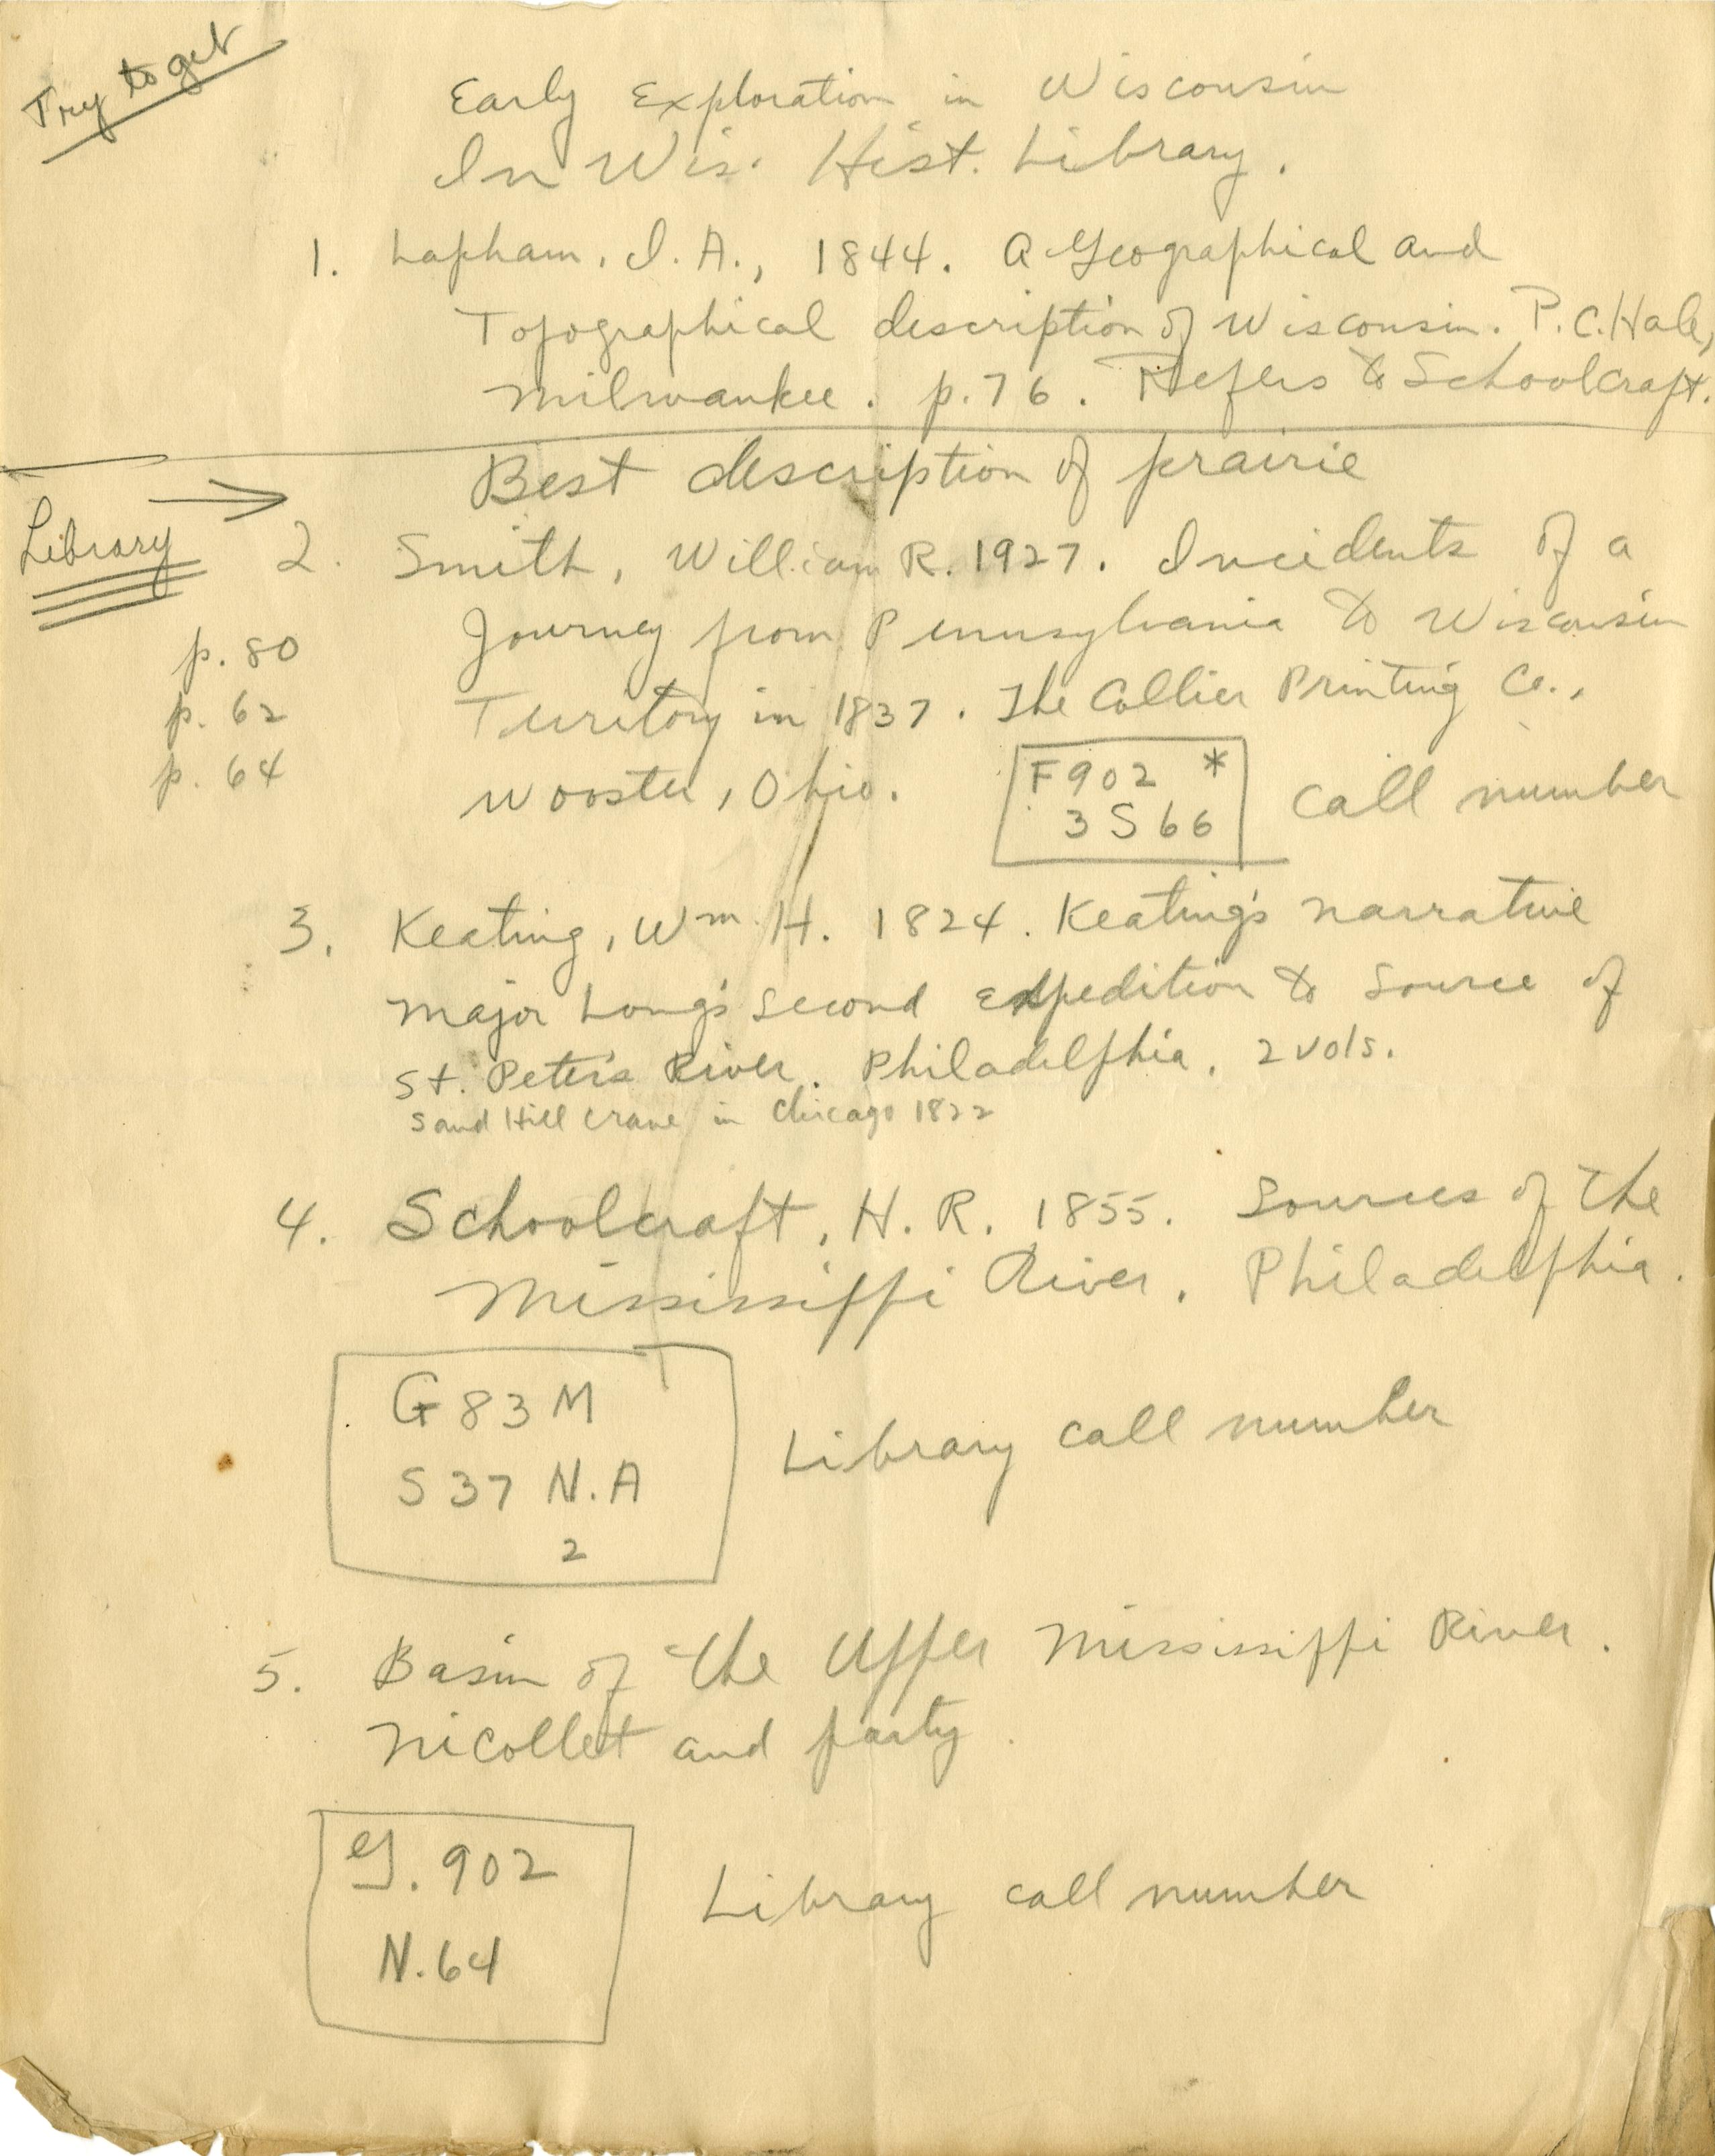 Try to get
Early Exploration in Wisconsin
In Wis. Hist. Library.
1. Lapham, I. A., 1844. A Geographical and
Topographical description of Wisconsin. P. C. Hale,
Milwaukee. p. 76. Refers to Schoolcraft.
Best description of prairie
Library →
2. Smith, William R. 1927. Incidents of a
Journey from Pennsylvania to Wisconsin
p. 80
Territory in 1837. The Collier Printing Co.,
p. 62
Wooster, Ohio.
p. 64
F902 *
3 S 66
Call number
3. Keating, Wm. H. 1824. Keating's narrative
Major Long's second expedition to source of
St. Peter's River. Philadelphia, 2 vols.
Sand Hill Crane in Chicago 1822
4. Schoolcraft, H. R. 1855. Sources of the
Mississippi River. Philadelphia.
G 83 M
S 37 N.A
2
Library call number
5. Basin of the Upper Mississippi River.
Nicollet and party.
G. 902
N. 64
Library call number